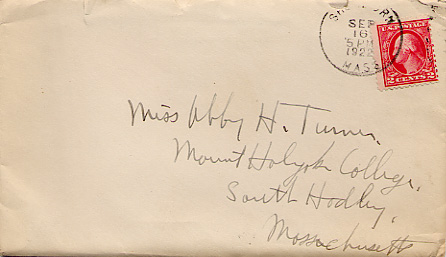 SEP
16
5 PM
1922
MASS
U.S. POSTAGE
2 CENTS 2
Miss Abby H. Turner,
Mount Holyoke College,
South Hadley,
Massachusetts